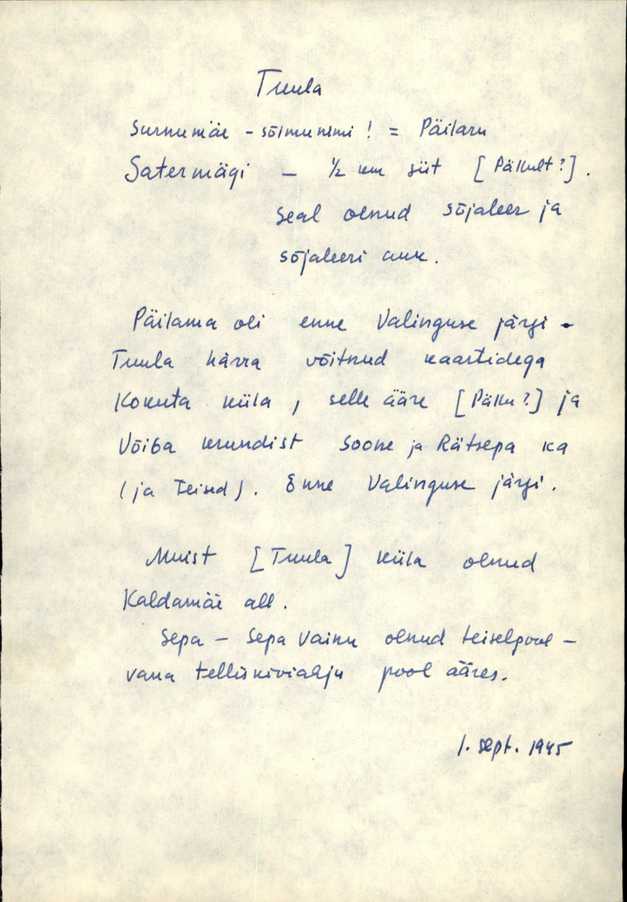 Tuula
Surnumäe - sõimunimi ! = Päilaru
Satermägi - ½ km siit [Pälkult?].
Seal olnud sõjaleer ja
sõjaleeri auk.
Päilama oli enne Valinguse järgi -
Tuula härra võitnud kaartidega
Kokuta küla, selle ääre [Pälku?] ja
Võiba krundist Soone ja Rätsepa ka
(ja teised). Enne Valinguse järgi.
Muist [Tuula] küla olnud
Kaldamäe all.
Sepa - Sepa vainu olnud teiselpool -
vana telliskiviahju pool ääres.
1. sept. 1945